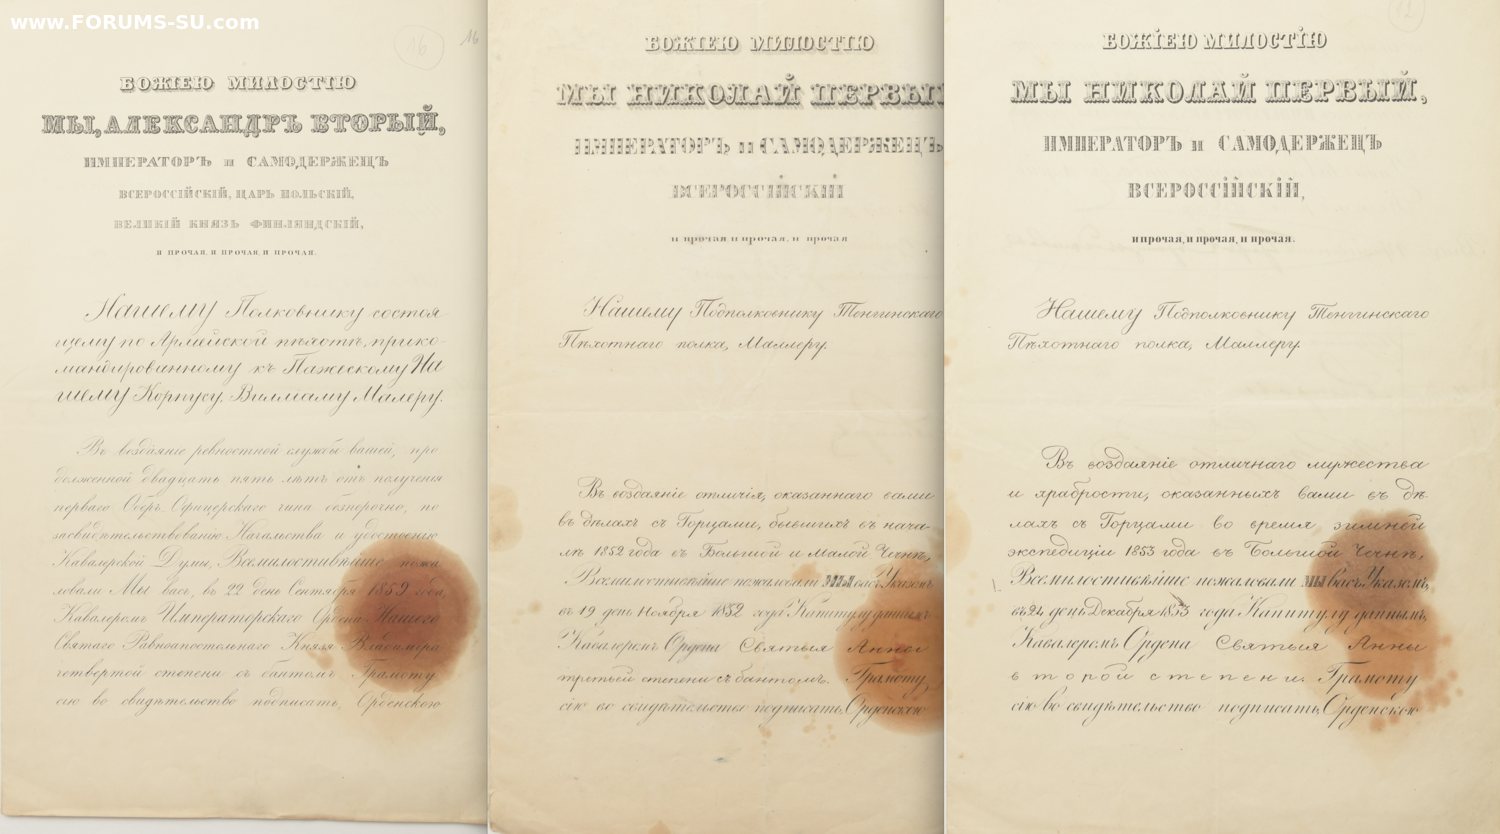 www.FORUMS-SU.com
16
16
БОЖІЕЮ МИЛОСТІЮ
МЫ, АЛЕКСАНДРЪ ВТОРЫЙ,
ИМПЕРАТОРЪ и САМОДЕРЖЕЦЪ
ВСЕРОССІЙСКІЙ, ЦАРЬ ПОЛЬСКІЙ,
ВЕЛИКІЙ КНЯЗЬ ФИНЛЯНДСКІЙ,
И ПРОЧАЯ, И ПРОЧАЯ, И ПРОЧАЯ.
Нашему Полковнику состоя-
щему по Армейской пѣхотѣ, прико-
мандированному къ Пажескому На
шему Корпусу, Вилліаму Малеру.
Въ воздаяніе ревностной службы вашей, про
долженной двадцать пять лѣтъ отъ полученія
перваго Оберъ-Офицерскаго чина безпорочно, по
засвидѣтельствованію Начальства и удостоенію
Кавалерской Думы, Всемилостивѣйше пожа
ловали Мы васъ, въ 22 день Сентября 1859 года,
Кавалеромъ Императорскаго Ордена Нашего
Святаго Равноапостольнаго Князя Владиміра
четвертой степени съ бантомъ. Грамоту
сію во свидѣтельство подписать, Орденскою
БОЖІЕЮ МИЛОСТІЮ
МЫ НИКОЛАЙ ПЕРВЫЙ
ИМПЕРАТОРЪ и САМОДЕРЖЕЦЪ
ВСЕРОССІЙСКІЙ
и прочая, и прочая, и прочая
Нашему Подполковнику Тенгинскаго
Пѣхотнаго полка, Маллеру.
Въ воздаяніе отличія, оказаннаго вами
въ дѣлахъ съ Горцами, бывшихъ въ нача-
лѣ 1852 года въ Большой и Малой Чечнѣ,
Всемилостивѣйше пожаловали МЫ васъ Указомъ
въ 19 день Ноября 1852 года Капитулу даннымъ
Кавалеромъ Ордена Святыя Анны
третьей степени съ бантомъ. Грамоту
сію во свидѣтельство подписать, Орденскою
21
БОЖІЕЮ МИЛОСТІЮ
МЫ НИКОЛАЙ ПЕРВЫЙ,
ИМПЕРАТОРЪ и САМОДЕРЖЕЦЪ
ВСЕРОССІЙСКІЙ,
и прочая, и прочая, и прочая.
Нашему Подполковнику Тенгинскаго
Пѣхотнаго полка, Маллеру.
Въ воздаяніе отличнаго мужества
и храбрости, оказанныхъ вами въ дѣ-
лахъ съ Горцами во время зимней
экспедиціи 1853 года въ Большой Чечнѣ,
Всемилостивѣйше пожаловали МЫ васъ Указомъ,
въ 24 день Декабря 1853 года Капитулу даннымъ,
Кавалеромъ Ордена Святыя Анны
второй степени. Грамоту
сію во свидѣтельство подписать, Орденскою